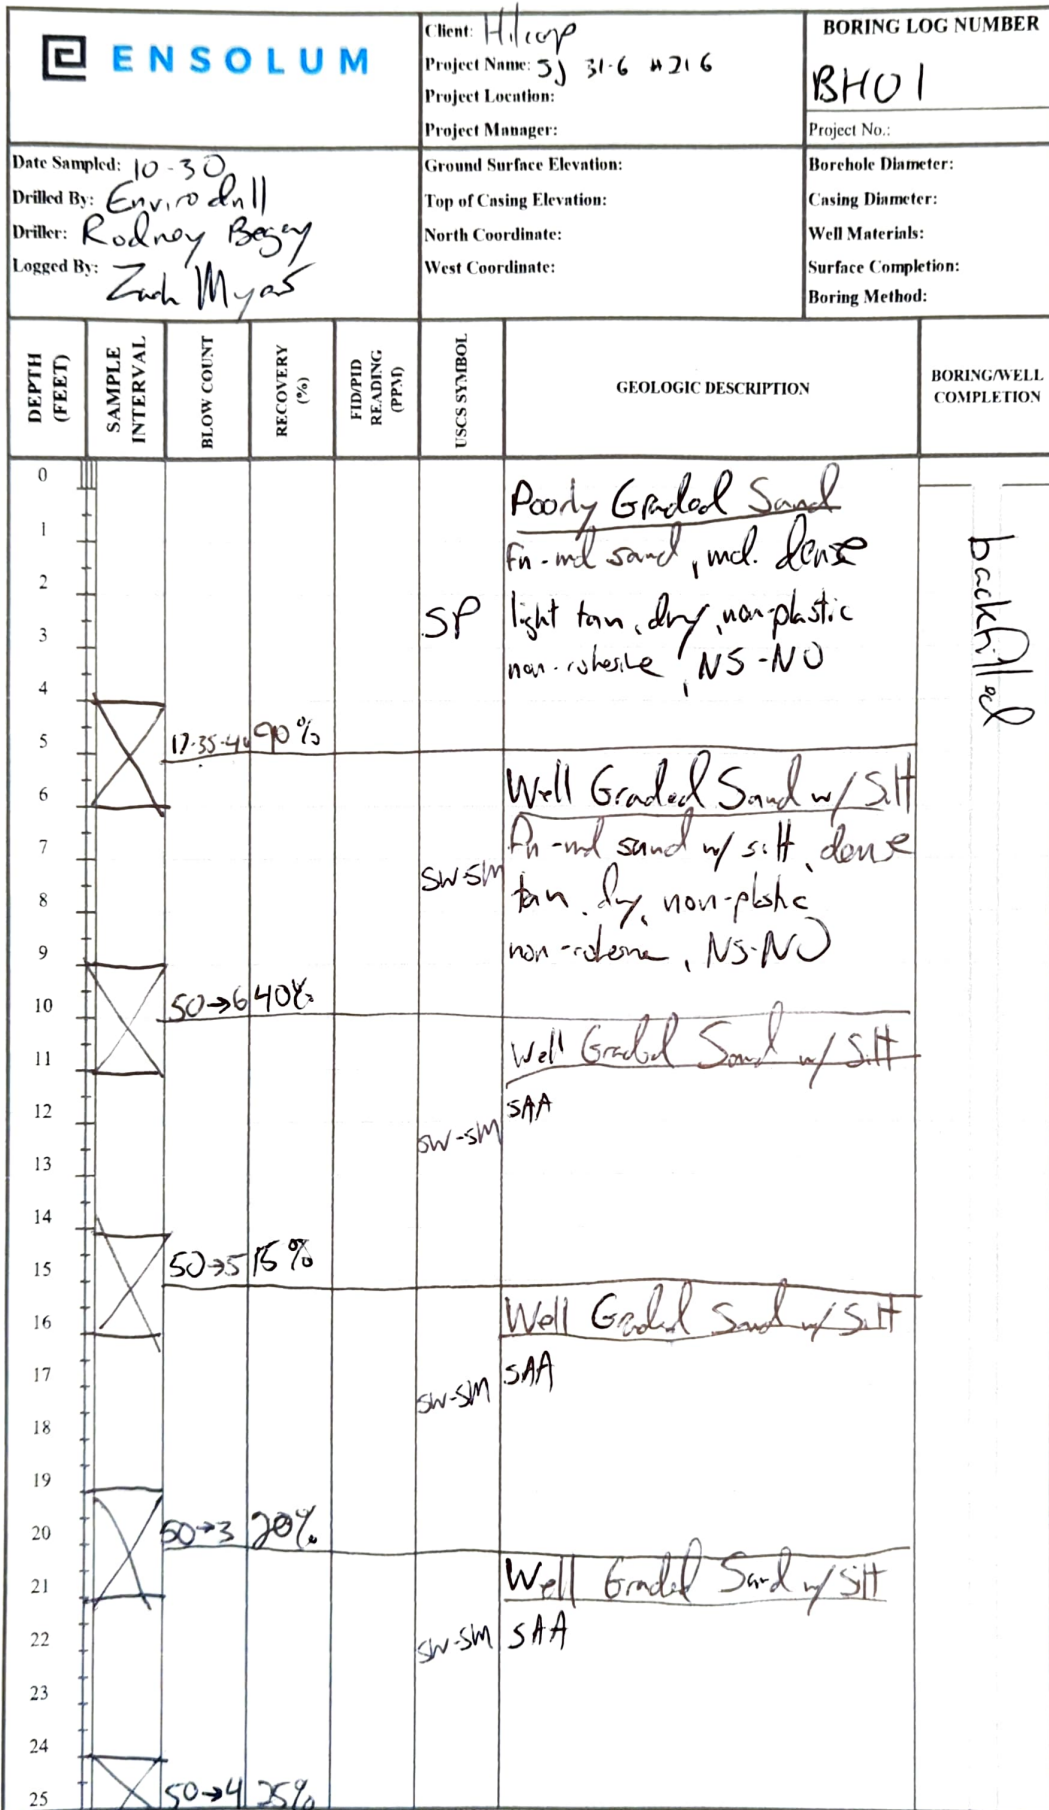 ENSOLUM
Client: Hilcorp
Project Name: SJ 31-6 #216
Project Location:
Project Manager:
BORING LOG NUMBER
BH01
Project No.:
Date Sampled: 10-30
Drilled By: Envirodrill
Driller: Rodney Begay
Logged By: Zach Myers
Ground Surface Elevation:
Top of Casing Elevation:
North Coordinate:
West Coordinate:
Borehole Diameter:
Casing Diameter:
Well Materials:
Surface Completion:
Boring Method:
DEPTH (FEET)
SAMPLE INTERVAL
BLOW COUNT
RECOVERY (%)
FID/PID READING (PPM)
USCS SYMBOL
GEOLOGIC DESCRIPTION
BORING/WELL COMPLETION
0
Poorly Graded Sand
1
fn-md sand, md. dense
backfilled
2
SP light tan, dry, non-plastic
3
non-cohesive, NS-NO
4
5 17-35-40 90%
Well Graded Sand w/ Silt
6
fn-md sand w/ silt, dense
7
SW-SM tan, dry, non-plastic
8
non-cohesive, NS-NO
9
10 50→6 40%
Well Graded Sand w/ Silt
11
SAA
12
SW-SM
13
14
15 50→5 15%
Well Graded Sand w/ Silt
16
SAA
17
SW-SM
18
19
20 50→3 20%
Well Graded Sand w/ Silt
21
22 SW-SM SAA
23
24
25 50→4 25%